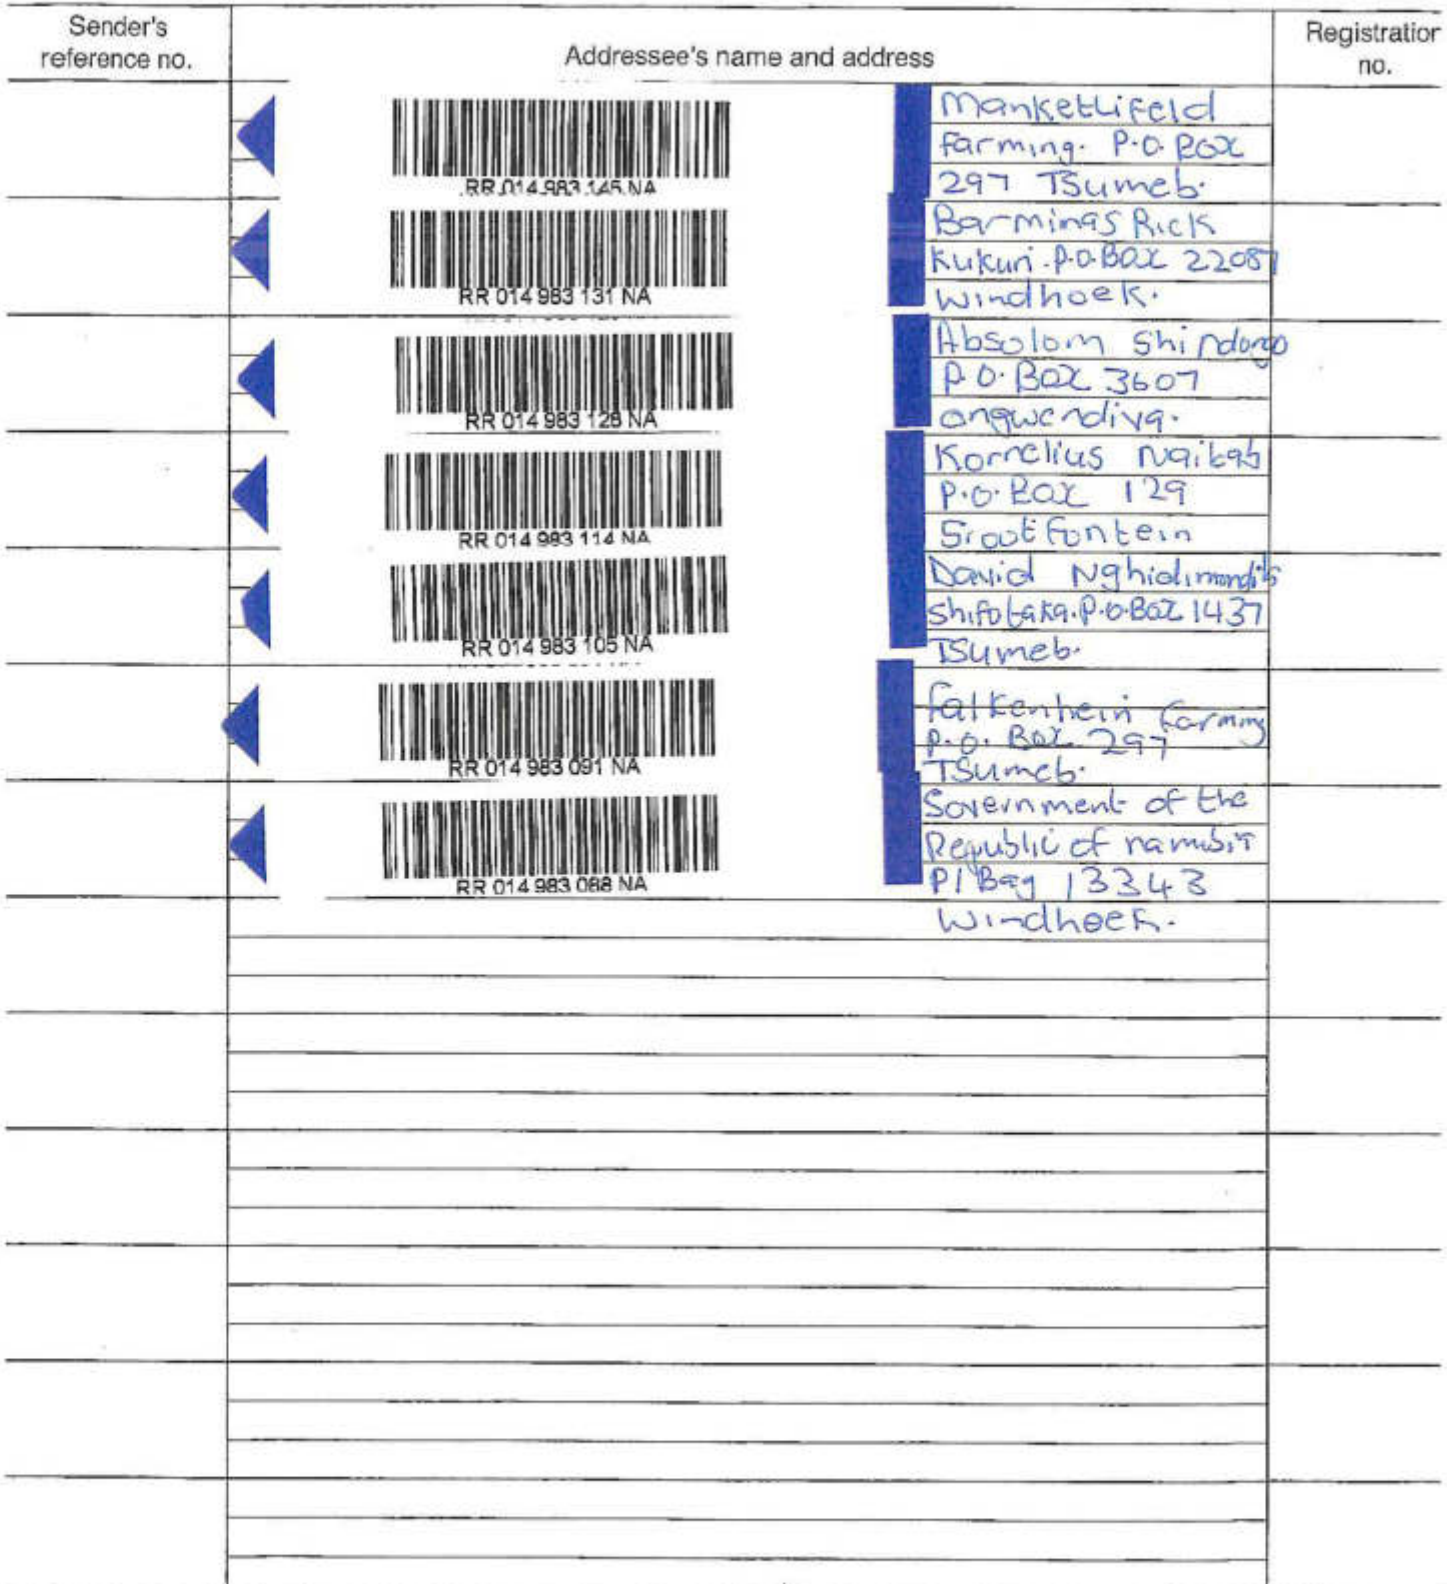 Sender's
reference no.
Addressee's name and address
Registration
no.
RR 014 983 145 NA
Mankettifeld
Farming. P.O. Box
297 Tsumeb.
RR 014 983 131 NA
Barminas Rick
Kukuri. P.O. Box 22087
windhoek.
RR 014 983 128 NA
Absolom Shindongo
P.O. Box 3607
ongwendiva.
RR 014 983 114 NA
Kornelius Naibab
P.O. Box 129
Grootfontein
RR 014 983 105 NA
David
Shifotaka. P.O. Box 1437
Tsumeb.
RR 014 983 091 NA
Falkenhein Farming
P.O. Box 297
Tsumeb.
RR 014 983 088 NA
Government of the
Republic of namibia
P/Bag 13343
Windhoek.